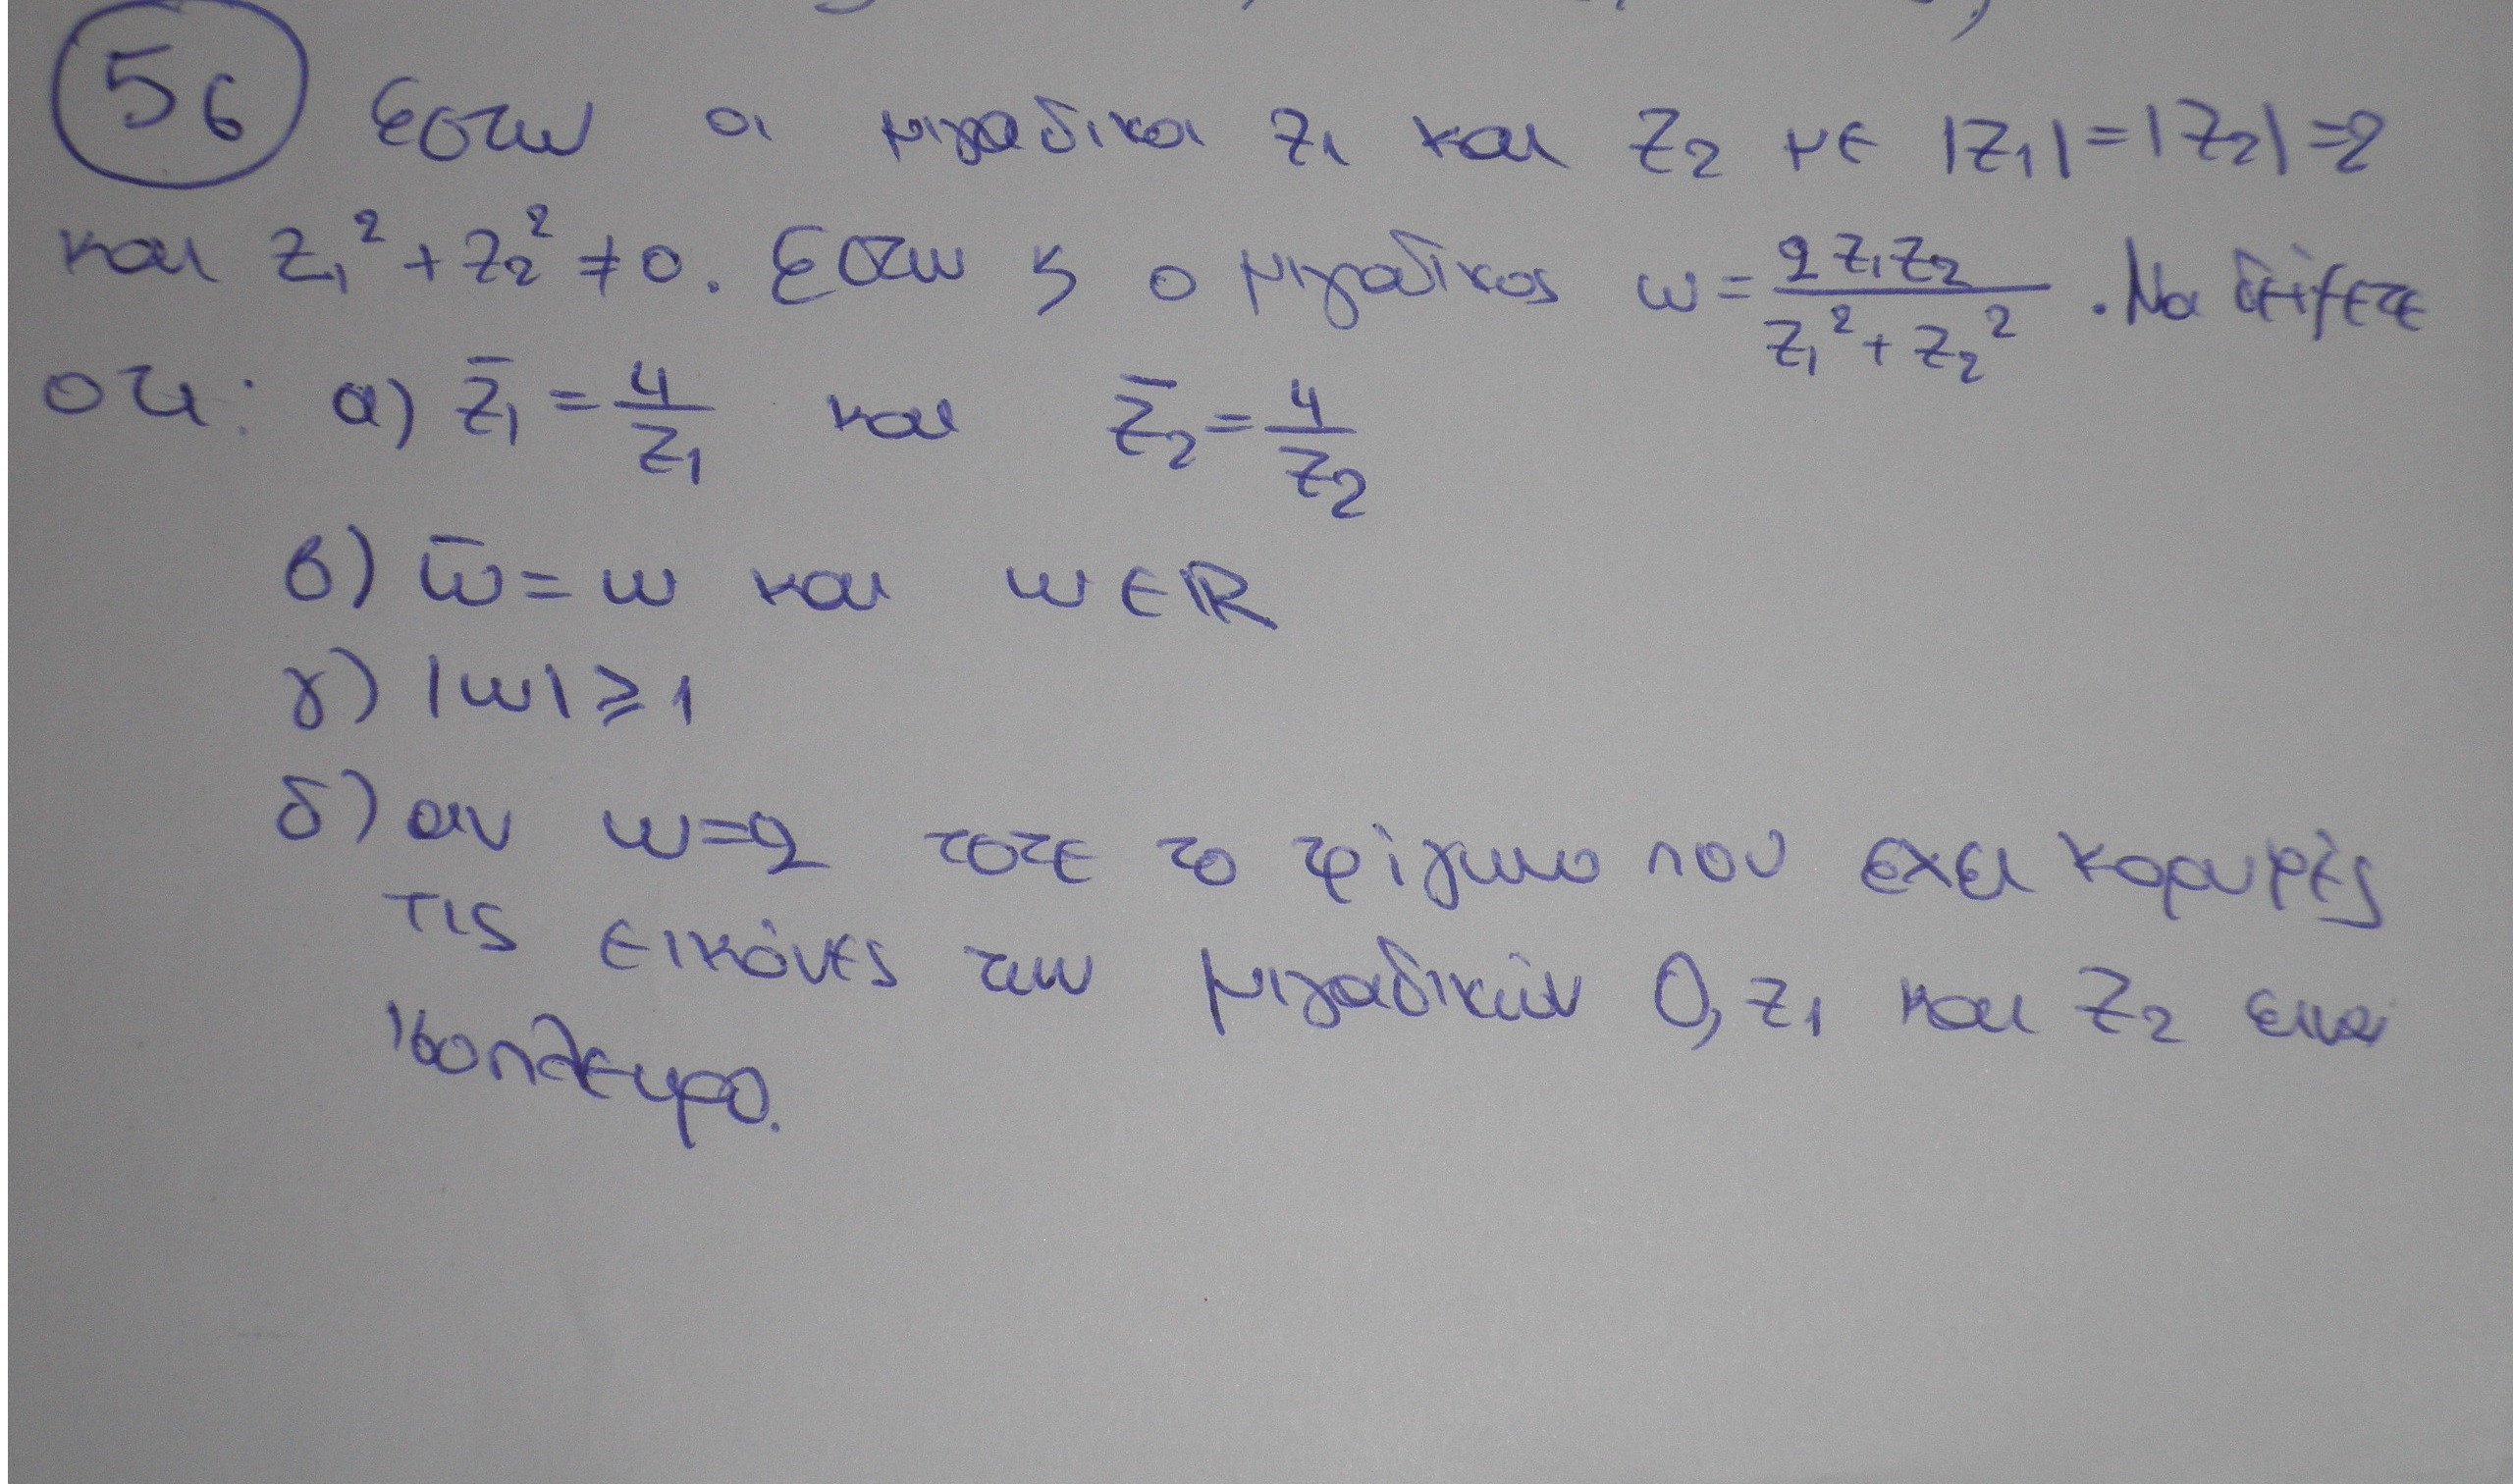 56 Εστω οι μιγαδικοι z₁ και z₂ με |z₁|=|z₂|=2
και z₁²+z₂²≠0. Εστω ϗ ο μιγαδικος w=2z₁z₂/(z₁²+z₂²). Να δείξετε
οτι: α) z̄₁=4/z₁ και z̄₂=4/z₂
β) w̄=w και w∈ℝ
γ) |w|⩾1
δ) αν w=2 τοτε το τρίγωνο που εχει κορυφές
τις εικόνες των μιγαδικών 0, z₁ και z₂ ειναι
ισοπλευρο.